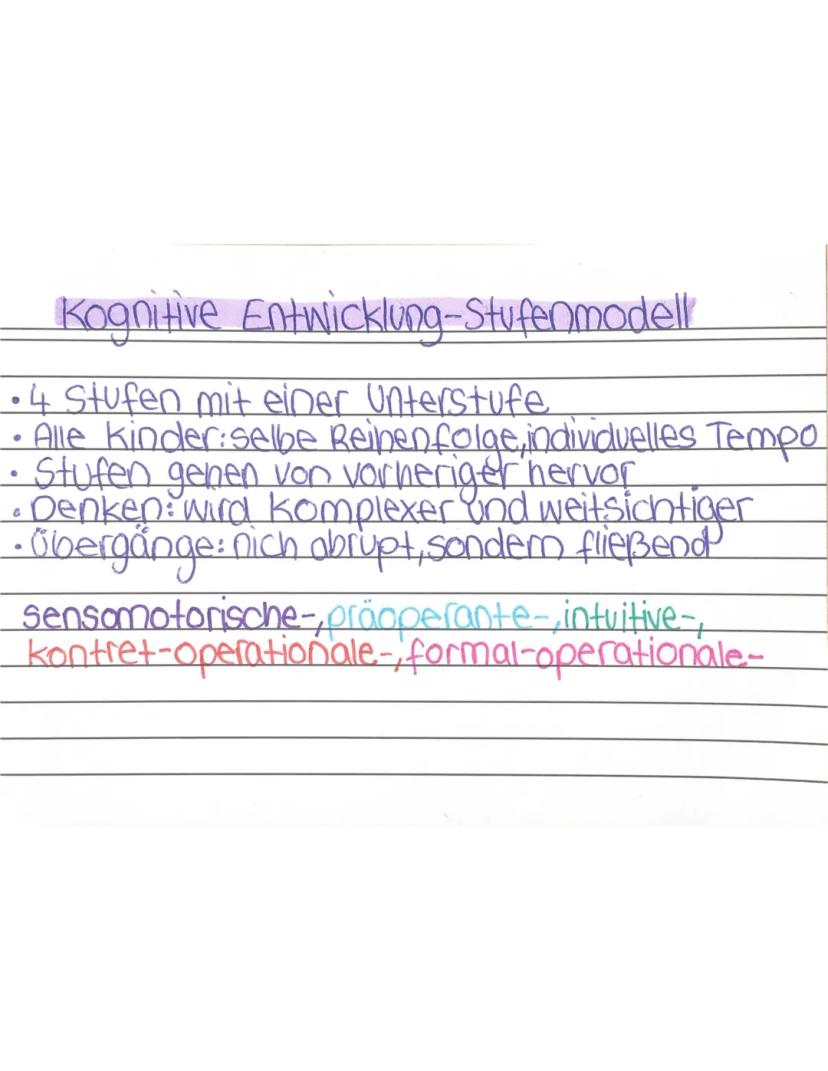 Kognitive Entwicklung-Stufenmodell
• 4 Stufen mit einer Unterstufe
• Alle Kinder: selbe Reihenfolge, individuelles Tempo
• Stufen gehen von vorheriger hervor
• Denken: wird komplexer und weitsichtiger
• Übergänge: nich abrupt, sondern fließend
sensomotorische-, präoperante-, intuitive-,
kontret-operationale-, formal-operationale-